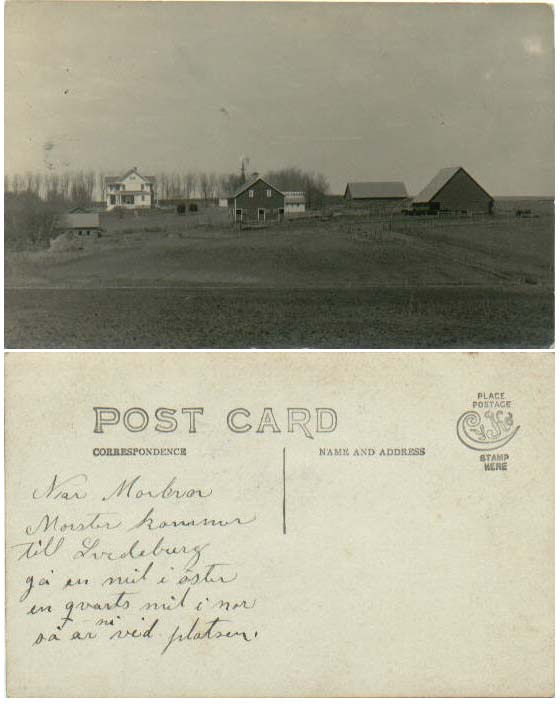 POST CARD
CORRESPONDENCE
NAME AND ADDRESS
PLACE
POSTAGE
STAMP
HERE
När Morbror
Morster kommer
till Svedeburg
gå en mil i öster
en qvarts mil i nor
så är ni vid platsen.